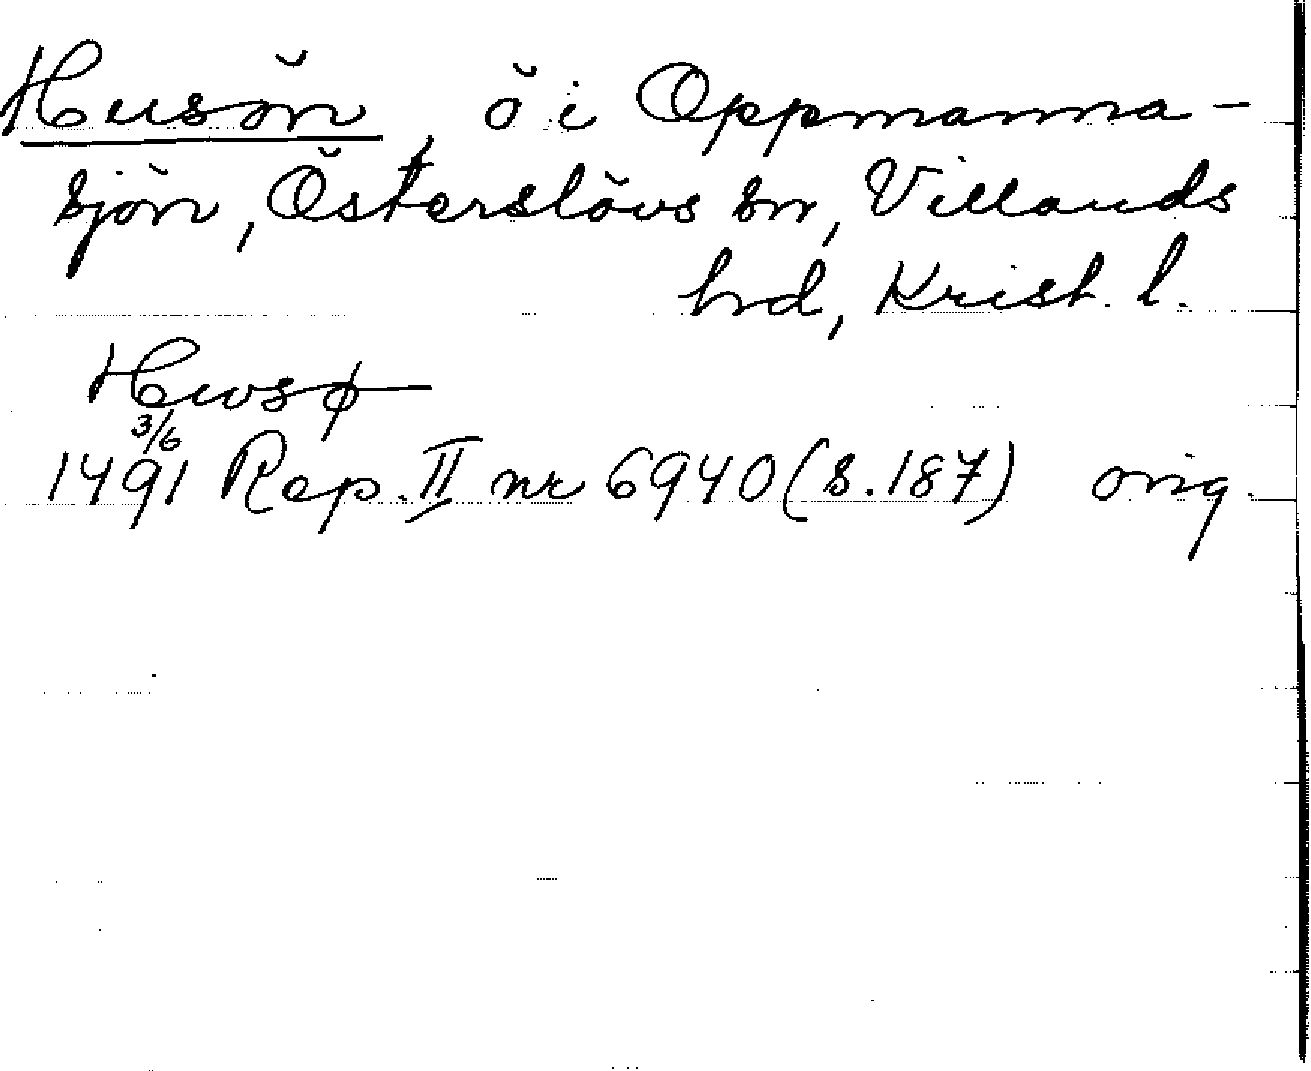 Husön, ö i Oppmanna-
sjön, Österslövs sn, Villands
hrd, Krist. l.
Hwsø
3/6
1491 Rep. II nr 6940 (s. 187) orig.